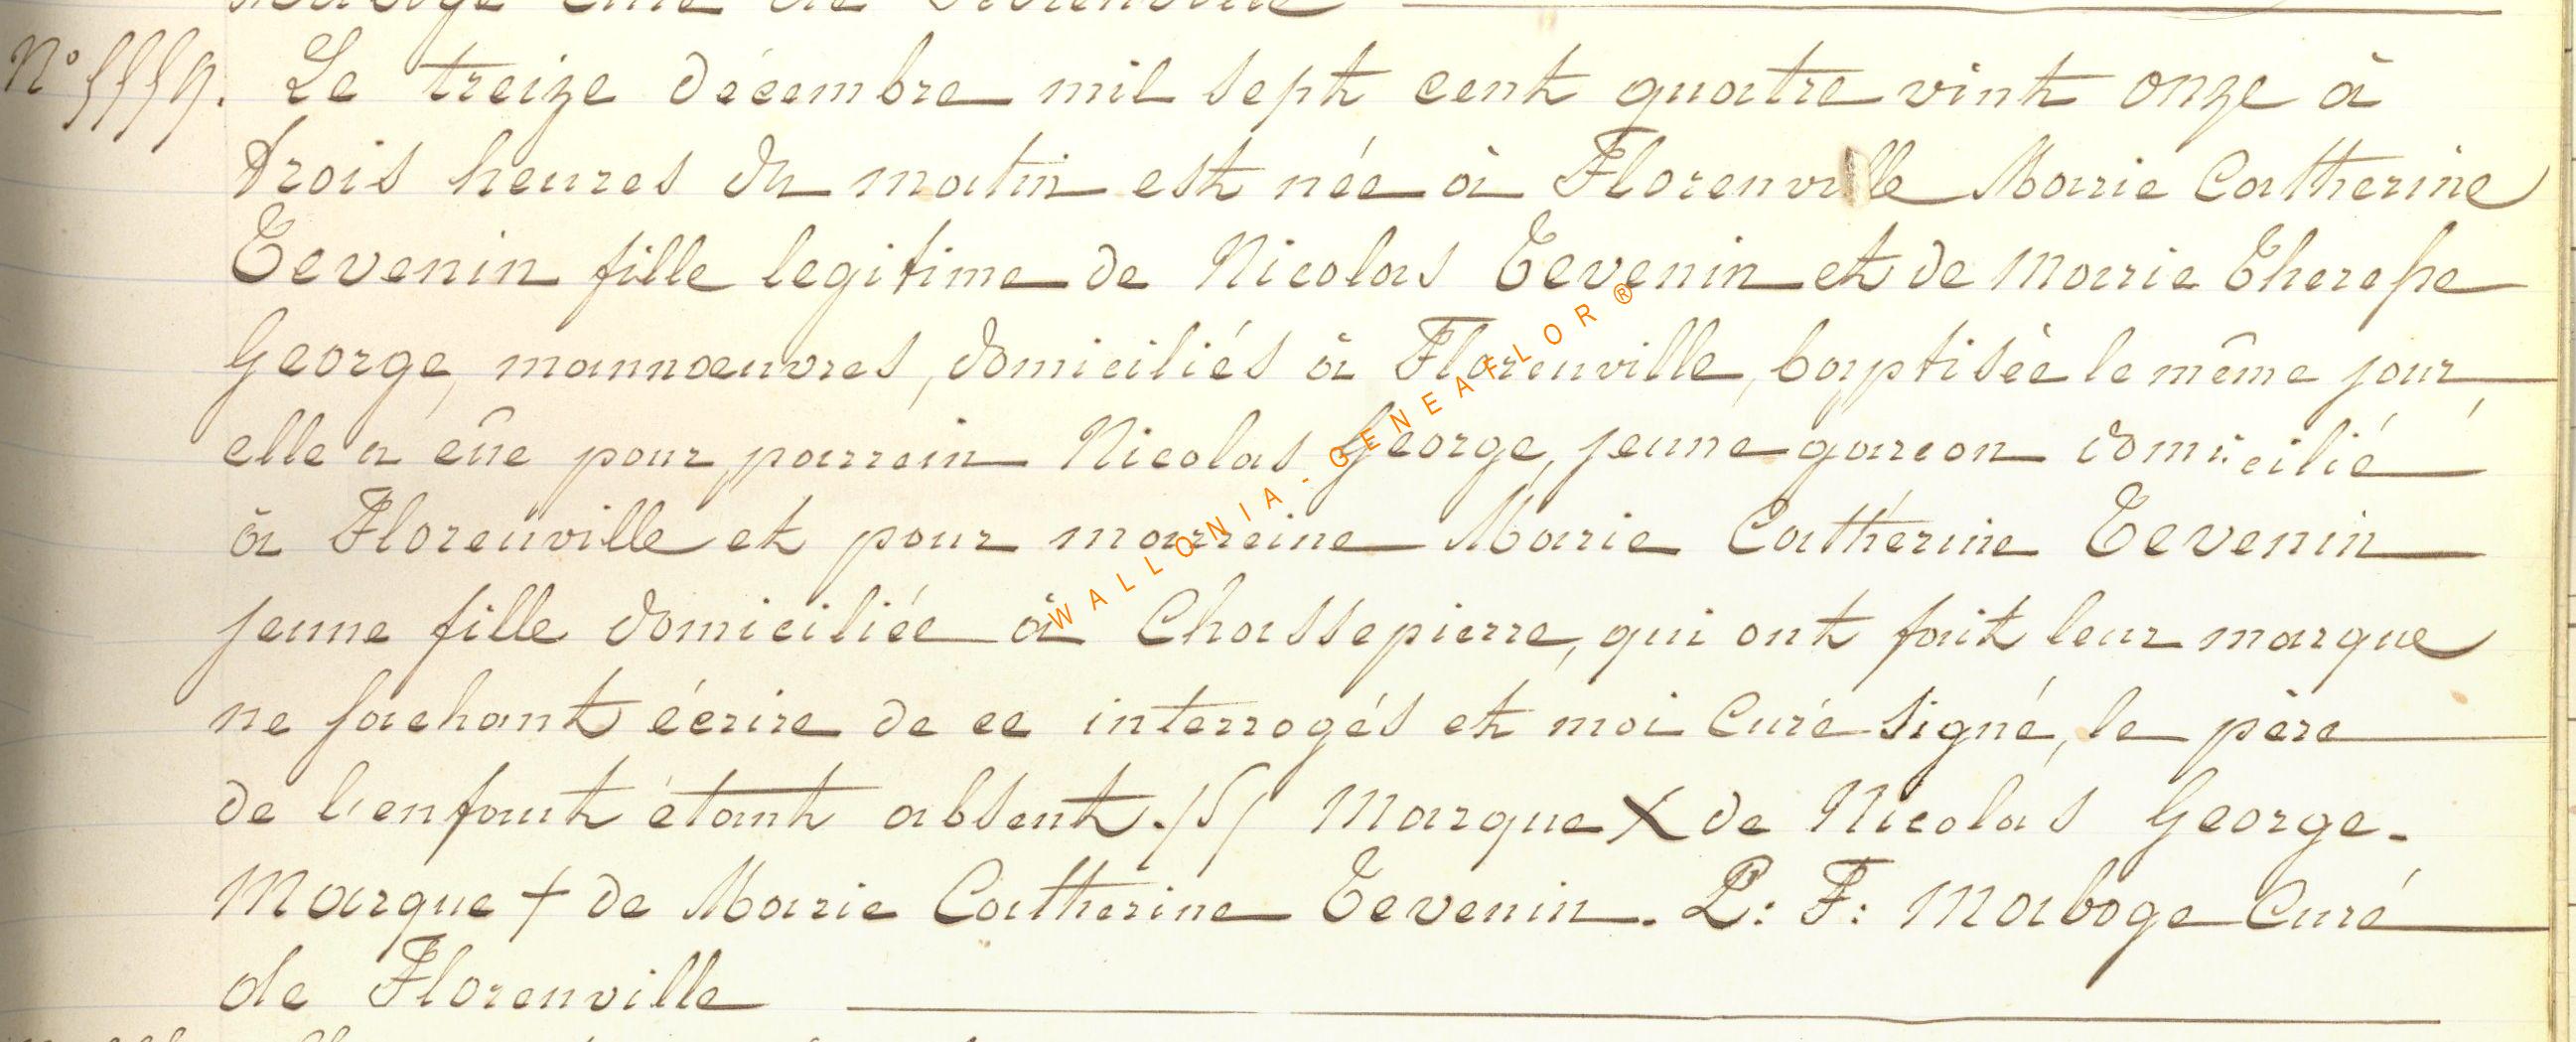 Maboge Curé de Florenville
N° 5559. Le treize décembre mil sept cent quatre vint onze à
trois heures du matin est née à Florenville Marie Catherine
Tevenin fille legitime de Nicolas Tevenin et de Marie Therese
George, mannœuvres, domiciliés à Florenville, baptisée le même jour
elle a eûe pour parrein Nicolas George, jeune garcon domicilié
à Florenville et pour marreine Marie Catherine Tevenin
jeune fille domiciliée à Chassepierre, qui ont fait leur marque
ne sachant écrire de ce interrogés et moi Curé signé, le père
de l'enfant étant absent. /S/ Marque X de Nicolas George.
Marque + de Marie Catherine Tevenin. P: F: Maboge Curé
de Florenville
WALLONIA-GENEAFLOR®